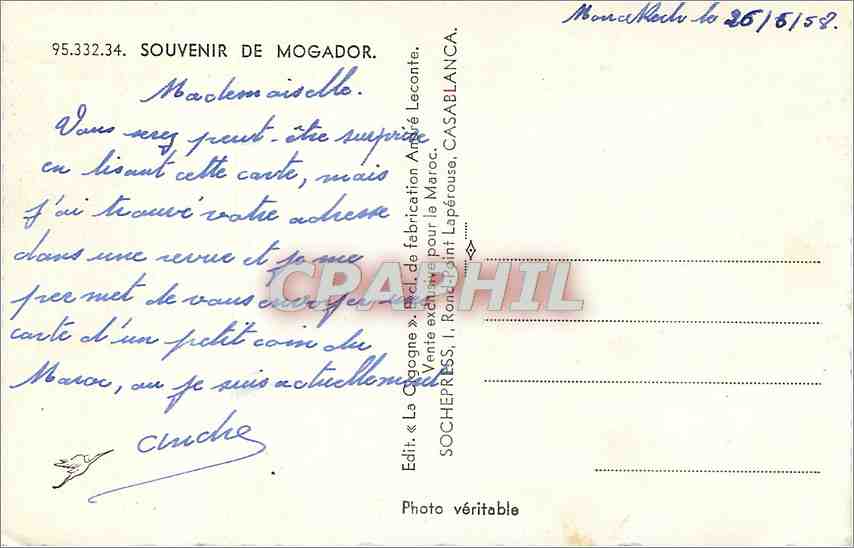 Marrakech le 26/6/58.
95.332.34. SOUVENIR DE MOGADOR.
Mademoiselle.
Vous serez peut-être surprise
en lisant cette carte, mais
j'ai trouvé votre adresse
dans une revue et je me
permet de vous envoyer une
carte d'un petit coin du
Maroc, ou je suis actuellement
André
Edit. « La Cigogne ». Excl. de fabrication André Leconte.
Vente exclusive pour le Maroc.
SOCHEPRESS, 1, Rond-Point Lapérouse, CASABLANCA.
CPARPHIL
Photo véritable